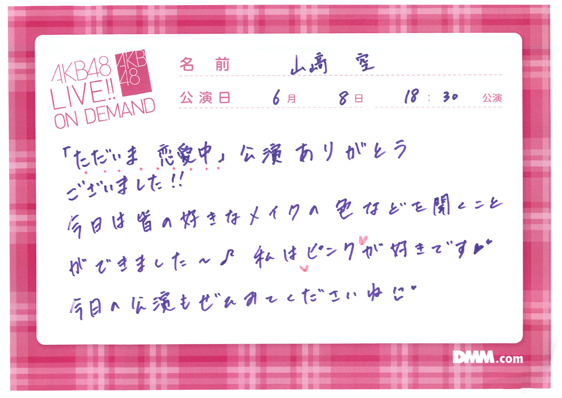 AKB48
LIVE!!
ON DEMAND
AKB
48
名前 山﨑 空
公演日 6月 8日 18:30 公演
「ただいま 恋愛中」公演 ありがとう
ございました!!
今日は皆の好きなメイクの色などを聞くこと
ができました〜♪ 私はピンクが好きです♥♥
今日の公演もぜひみてくださいね
DMM.com